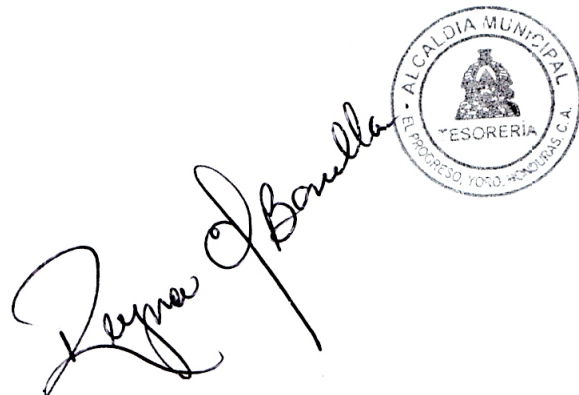 ALCALDIA MUNICIPAL
TESORERÍA
EL PROGRESO, YORO, HONDURAS, C.A.
Reyna
Bonilla